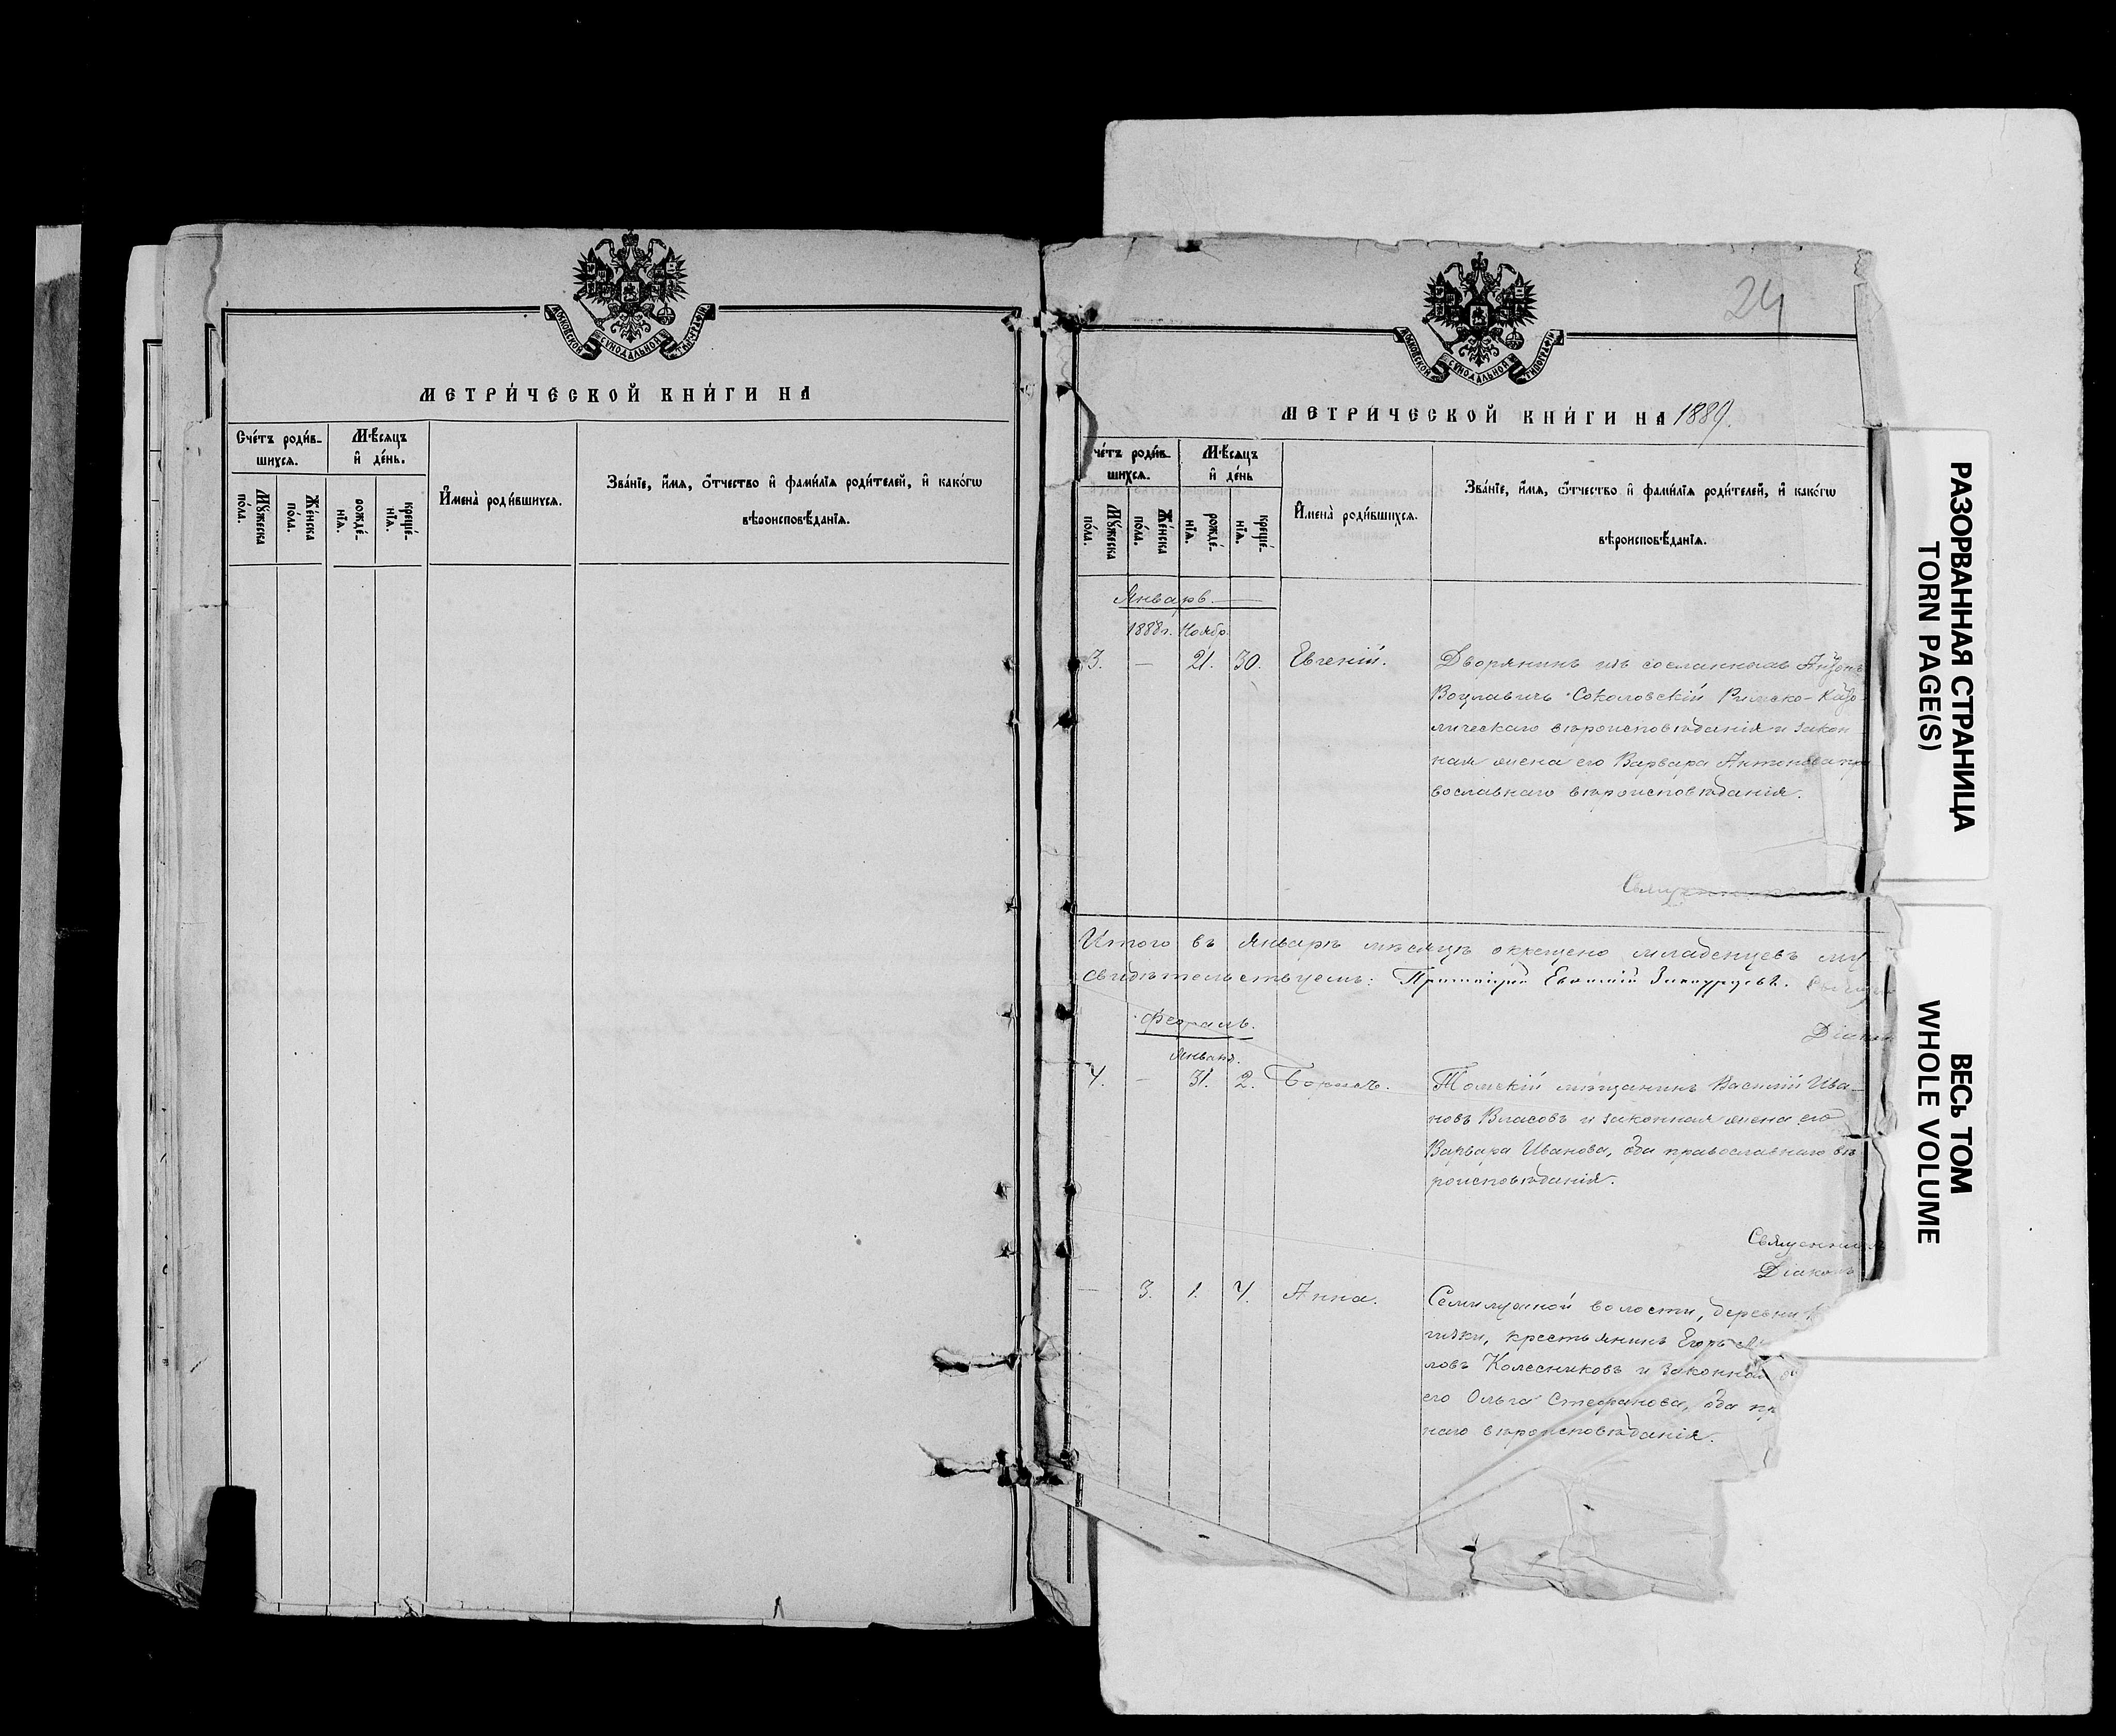 МОСКОВСКОЙ СѴНОДАЛЬНОЙ ТИПОГРАФІИ
МЕТРИ́ЧЕСКОЙ КНИ́ГИ НА
Сче́тъ роди́в-
шихся.
Мѣ́сяцъ
и҆ де́нь.
Мꙋ́жеска
по́ла.
Же́нска
по́ла.
рожде́-
нїѧ.
креще́-
нїѧ.
И҆мена̀ роди́вшихся.
Зва́нїе, и҆́мѧ, ѻ҆́тчество и҆ фами́лїѧ роди́телей, и҆ како́гѡ
вѣроисповѣ́данїѧ.
МОСКОВСКОЙ СѴНОДАЛЬНОЙ ТИПОГРАФІИ
24
МЕТРИ́ЧЕСКОЙ КНИ́ГИ НА 1889.
че́тъ роди́в-
шихся.
Мѣ́сяцъ
и҆ де́нь
Мꙋ́жеска
по́ла.
Же́нска
по́ла.
рожде́-
нїѧ.
креще́-
нїѧ.
И҆мена̀ роди́вшихся.
Зва́нїе, и҆́мѧ, ѻ҆́тчество и҆ фами́лїѧ роди́телей, и҆ како́гѡ
вѣроисповѣ́данїѧ.
Январь
1888 г. Ноябр.
3. — 21. 30. Евгеній. Дворянинъ изъ
Соколовскій Римско-Като-
лическаго вѣроисповѣданія и закон-
ная жена его Варвара Антонова пра
вославнаго вѣроисповѣданія.
Итого въ Январѣ мѣсяцѣ окрещено младенцевъ му
свидѣтельствуемъ: Евгеній
Февраль.
Діакон
Января.
4. — 31. 2. Борисъ. Томскій мѣщанинъ Василій Ива-
новъ Власовъ и законная жена его
Варвара Иванова, оба православнаго вѣ
роисповѣданія.
Священник
Діаконъ
— 3. 1. 4. Анна. Семилужной волости, деревни
крестьянинъ Егоръ
ловъ Колесниковъ и законная
его Ольга Стефанова, оба пр
наго вѣроисповѣданія.
РАЗОРВАННАЯ СТРАНИЦА
TORN PAGE(S)
ВЕСЬ ТОМ
WHOLE VOLUME